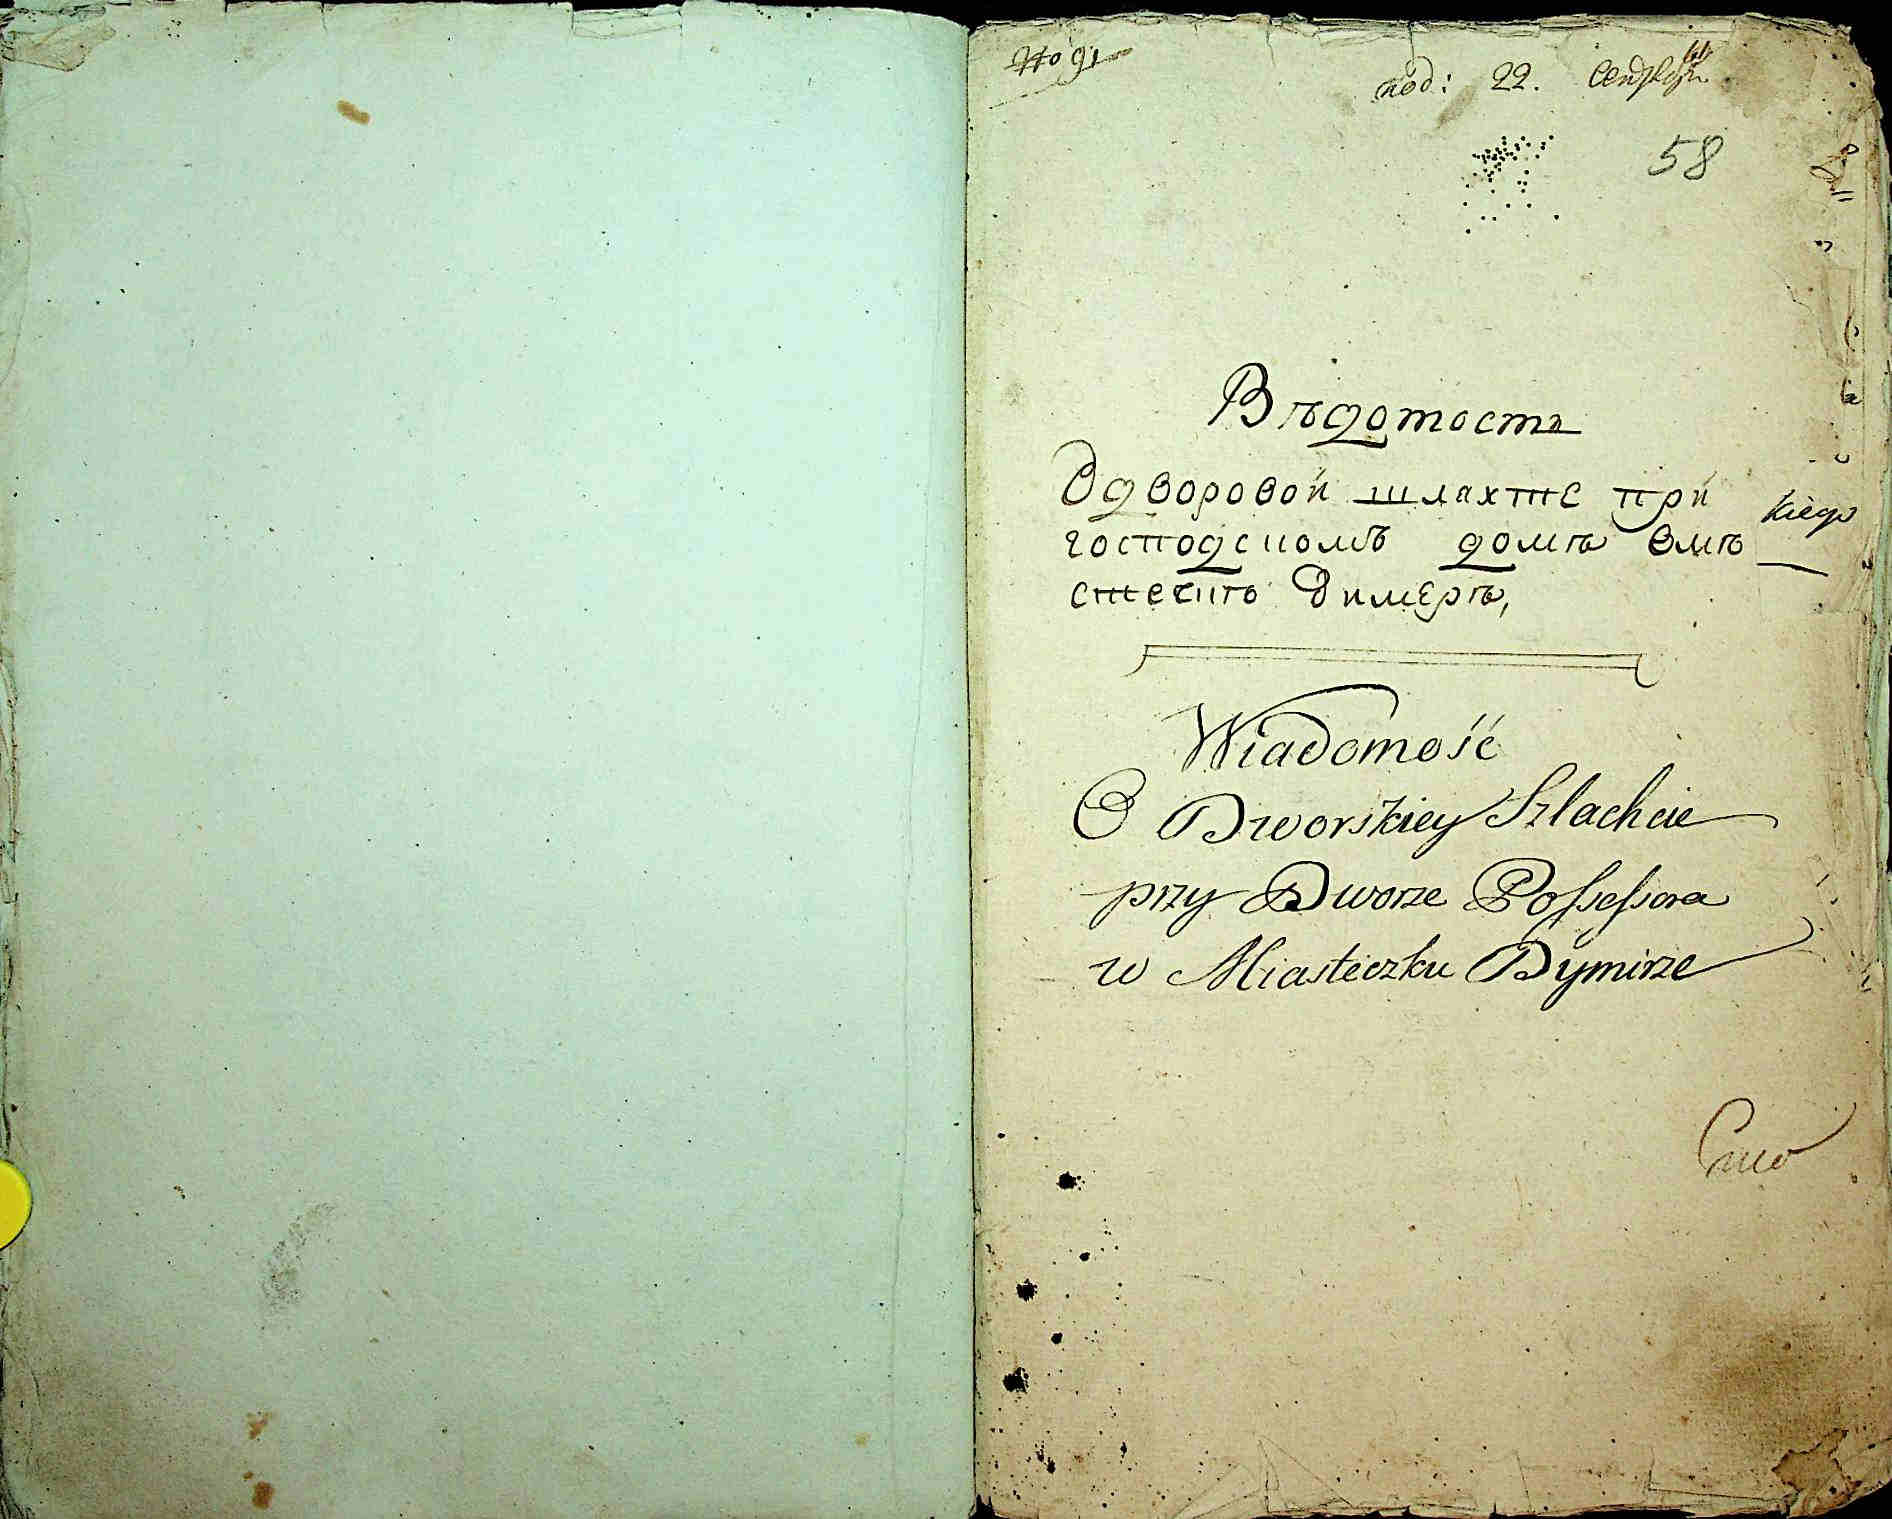 No 91
под: 22. Сентября
58
Вѣдомость
Одворовой шляхте при
господскомъ домѣ вмѣ
стечкѣ Димерѣ,
kiego
Wiadomość
O Dworskiey Szlachcie
przy Dworze Possessora
w Miasteczku Dymirze